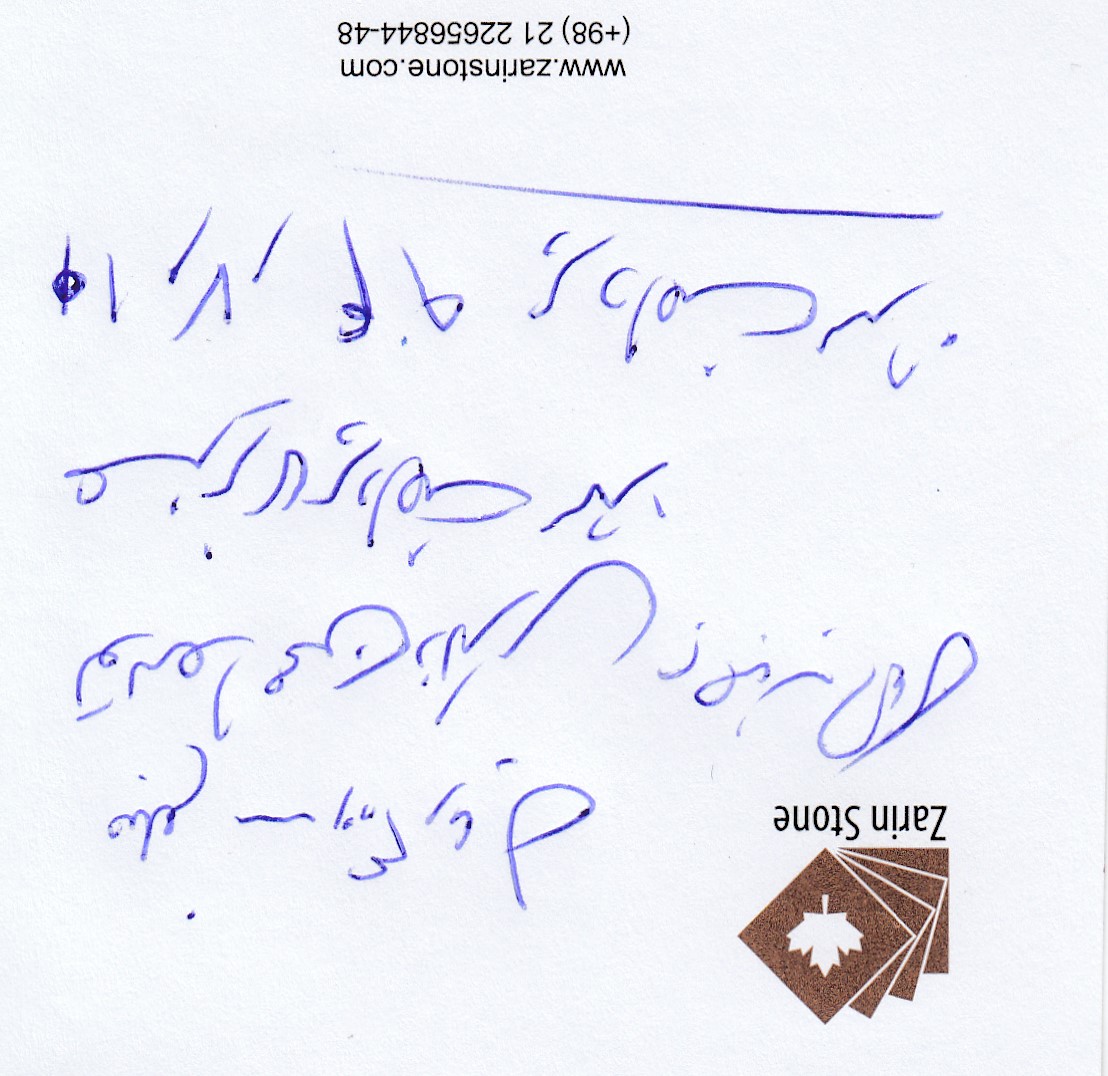 Zarin Stone
مبلغ ریال
توسط محسن ذاکری به جناب آقای
عزیزی پرداخت شد
۹۴/۷/۱ پرداخت شد.
www.zarinstone.com
(+98) 21 22656844-48